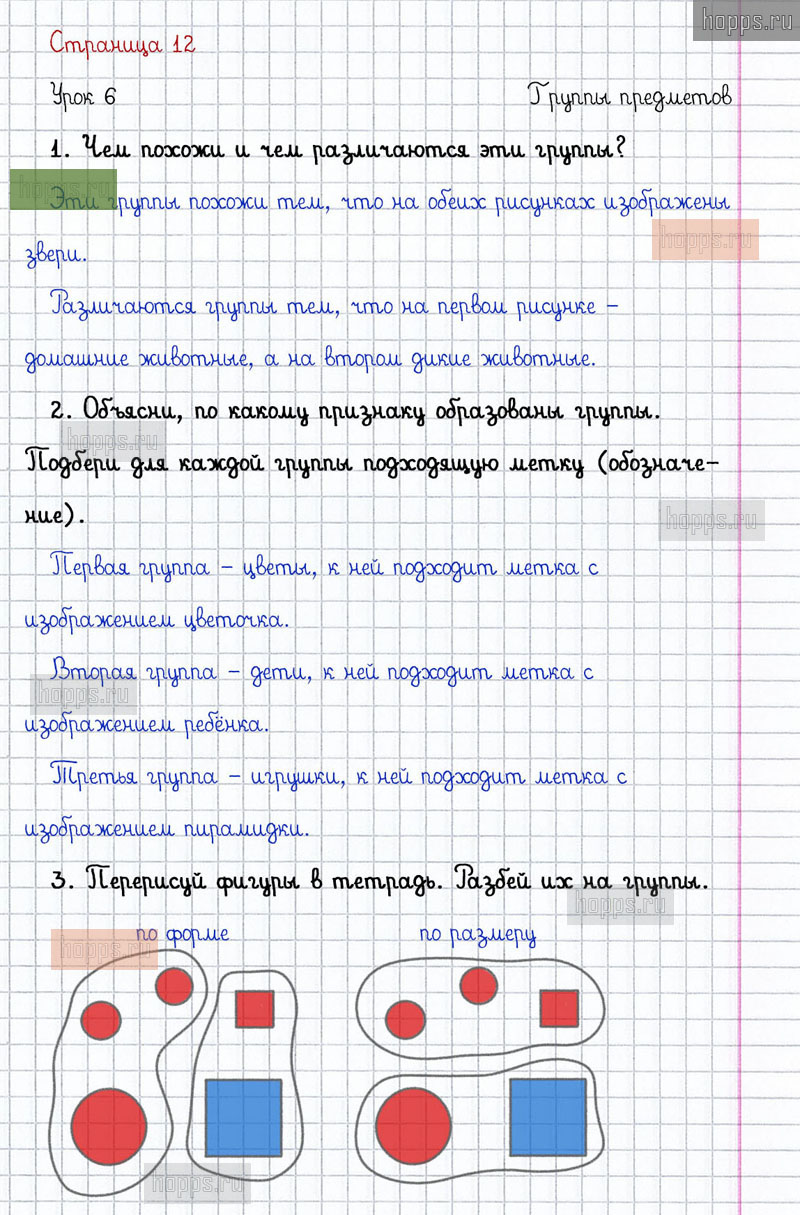 hopps.ru
Страница 12
Урок 6 Группы предметов
1. Чем похожи и чем различаются эти группы?
hopps.ru
Эти группы похожи тем, что на обеих рисунках изображены
hopps.ru
звери.
Различаются группы тем, что на первом рисунке –
домашние животные, а на втором дикие животные.
2. Объясни, по какому признаку образованы группы.
hopps.ru
Подбери для каждой группы подходящую метку (обозначе-
hopps.ru
ние).
Первая группа – цветы, к ней подходит метка с
изображением цветочка.
Вторая группа – дети, к ней подходит метка с
hopps.ru
изображением ребёнка.
Третья группа – игрушки, к ней подходит метка с
изображением пирамидки.
3. Перерисуй фигуры в тетрадь. Разбей их на группы.
hopps.ru
по форме по размеру
hopps.ru
hopps.ru